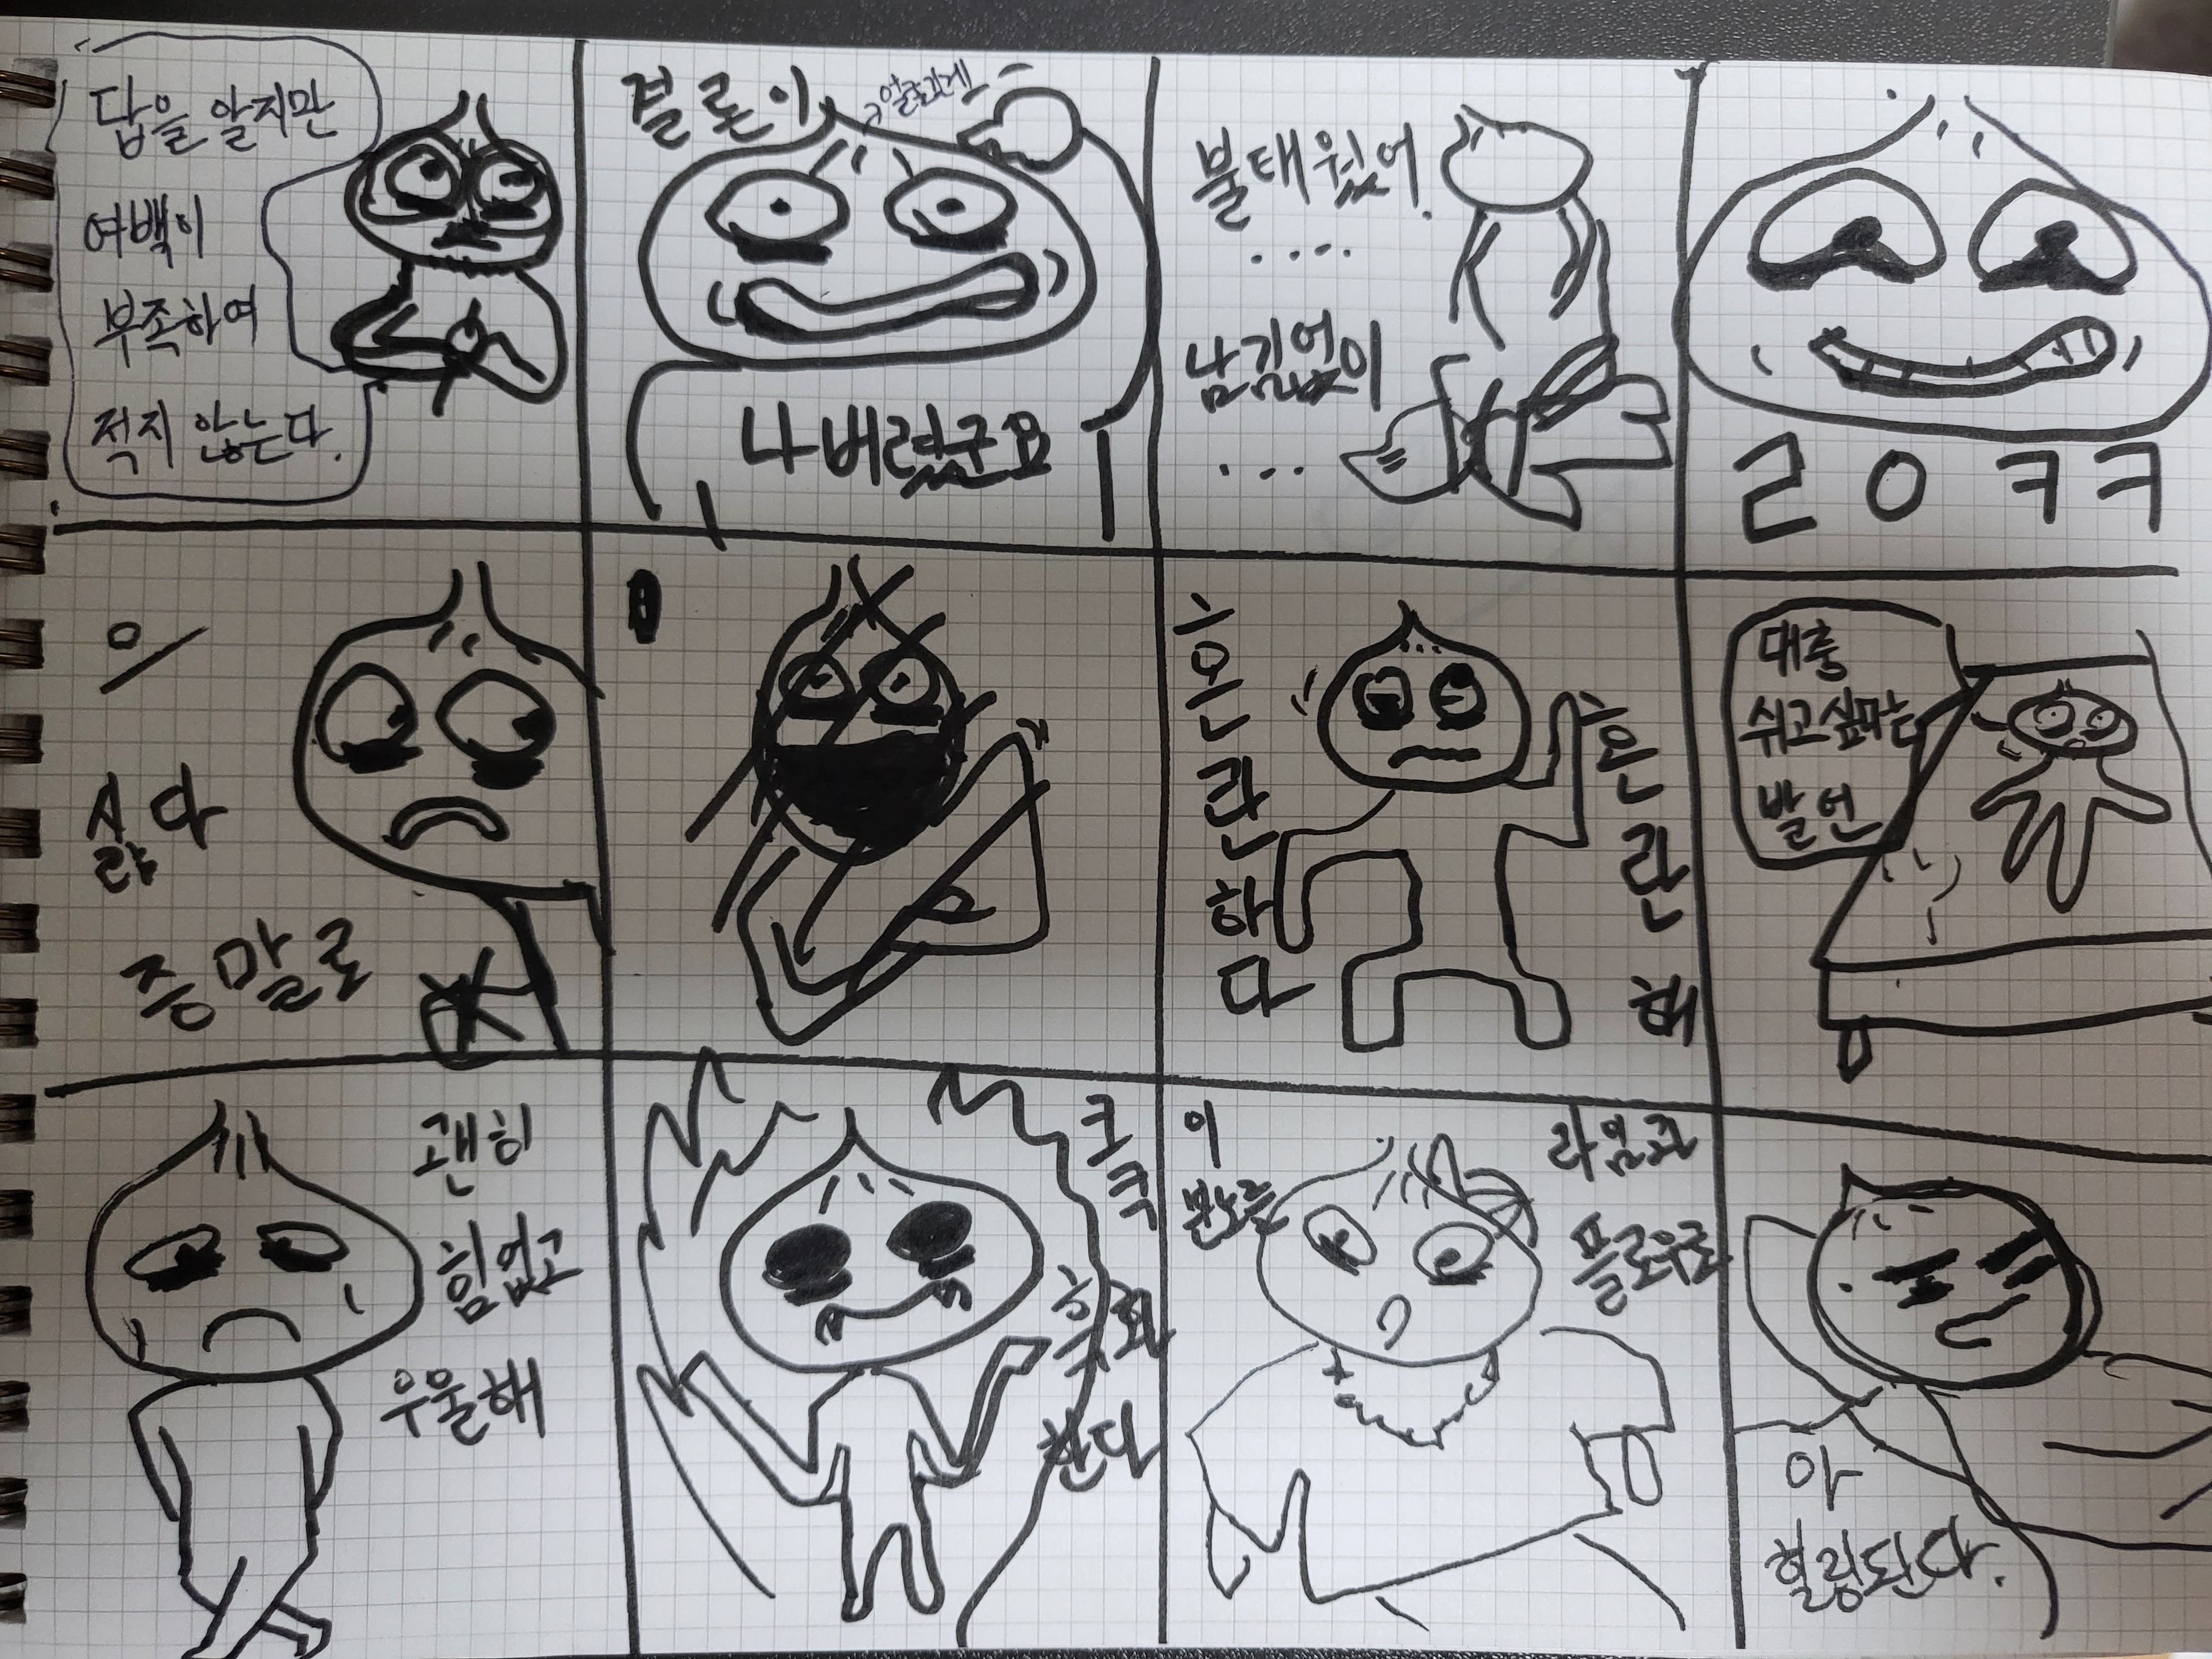 답을 알지만
여백이
부족하여
적지 않는다.
결론이
나버렸군요
불태웠어
....
남김없이
...
ㄹㅇㅋㅋ
으
싫다
증말로
혼란하다
혼란해
대충
쉬고싶다는
발언
괜히
힘없고
우울해
크큭
흑화
한다
이
분노를
라임과
플로우로
아
힐링된다.